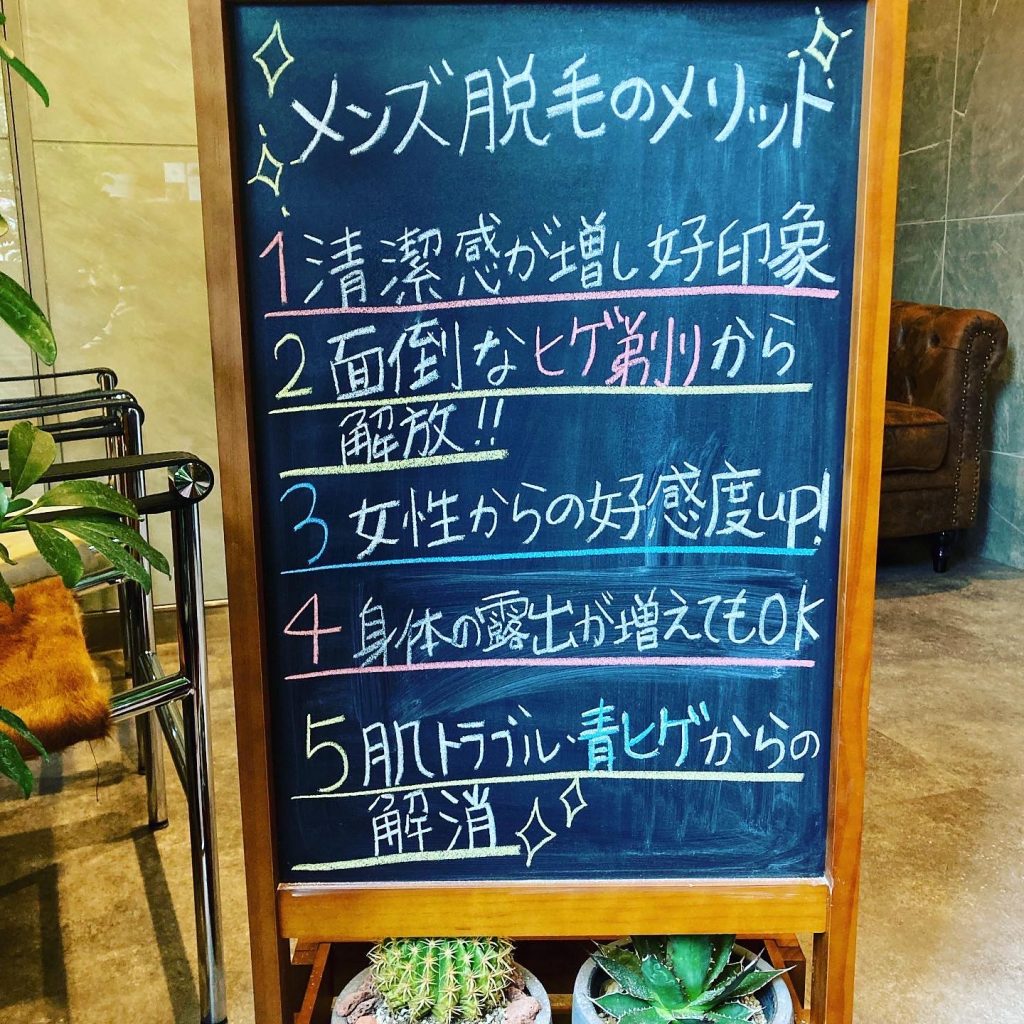 メンズ脱毛のメリット
1 清潔感が増し好印象
2 面倒なヒゲ剃りから
解放!!
3 女性からの好感度up!
4 身体の露出が増えてもOK
5 肌トラブル・青ヒゲからの
解消